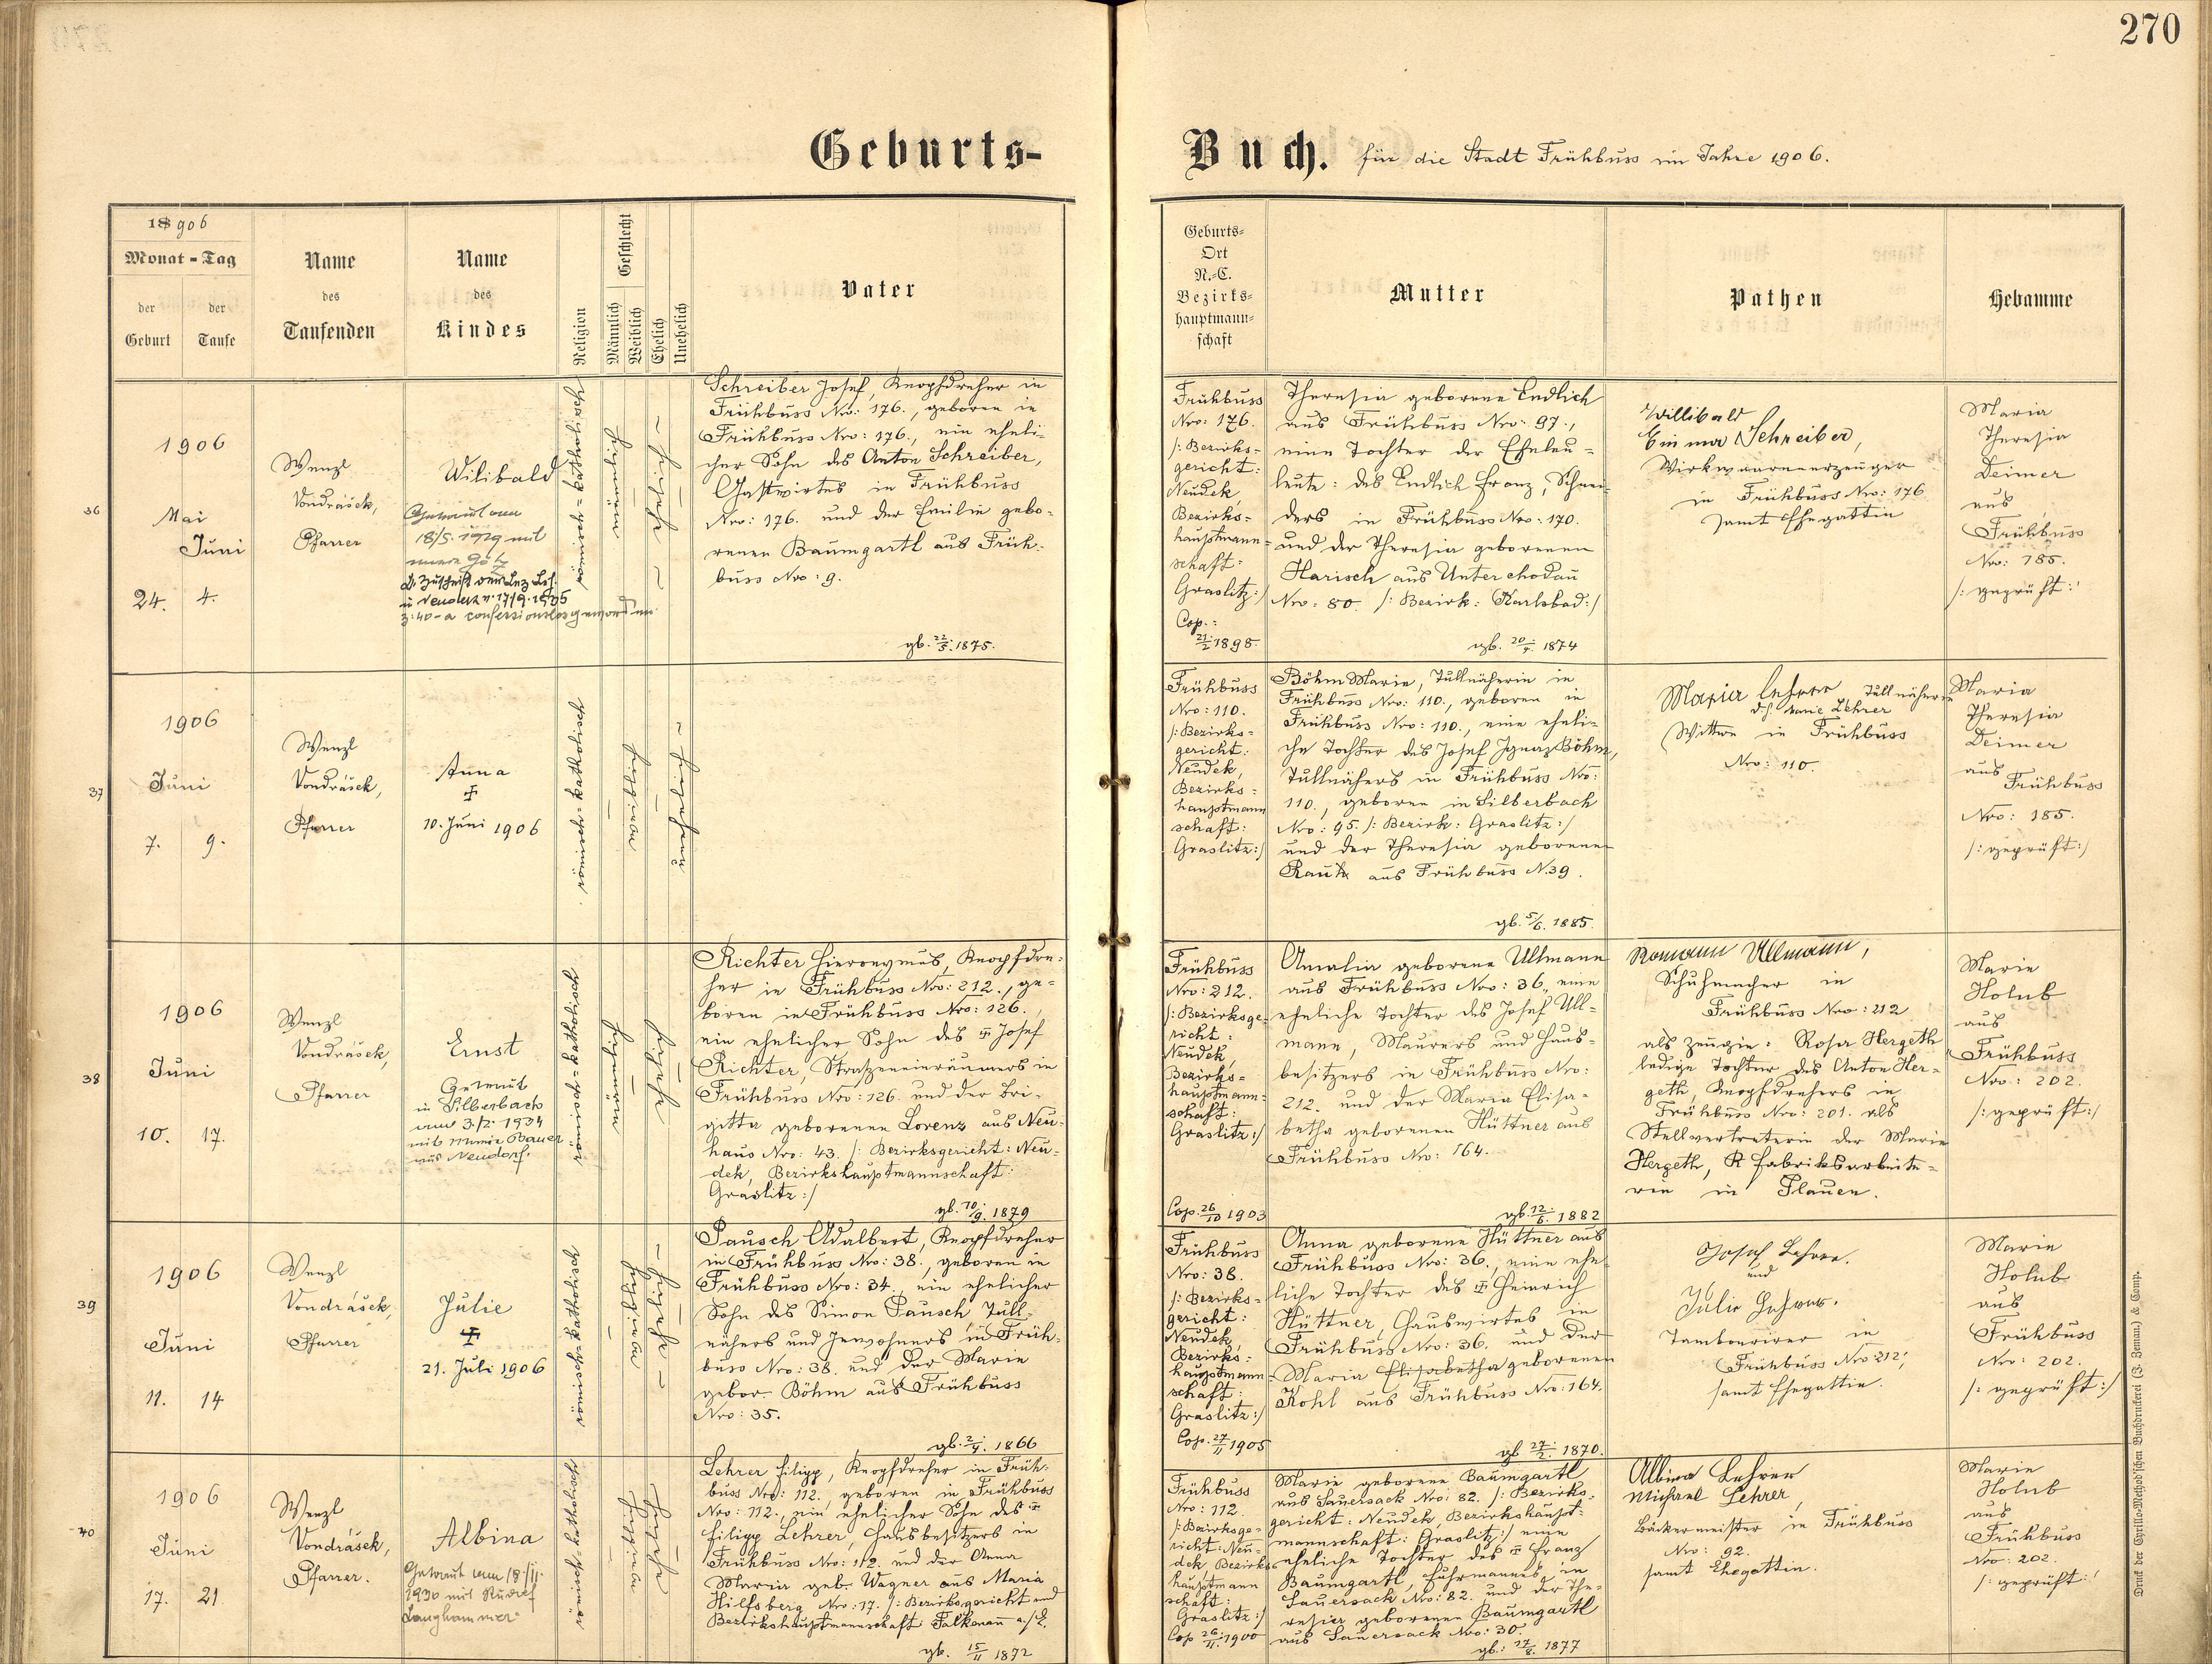 270
Geburts-
Buch. für die Stadt Frühbuss im Jahre 1906.
18 906
Monat - Tag
der Geburt
der Taufe
Name des Taufenden
Name des Kindes
Religion
Geschlecht
Männlich
Weiblich
Ehelich
Unehelich
Vater
Geburts-
Ort
N.-C.
Bezirks-
hauptmann-
schaft
Mutter
Pathen
Hebamme
36
1906
Mai
Juni
24. 4.
Wenzl
Vondrášek,
Pfarrer
Wilibald
Getraut am
18/5. 1929 mit
Götz
römisch-katholisch
Schreiber Josef, Knopfdreher in
Frühbuss Nro: 176., geboren in
Frühbuss Nro: 176., ein eheli-
cher Sohn des Anton Schreiber,
Gastwirtes in Frühbuss
Nro: 176. und der Emilie gebo-
renen Baumgartl aus Früh-
buss Nro: 9.
gb. 22/5. 1875.
Frühbuss
Nro: 176.
/: Bezirks-
gericht:
Neudek,
Bezirks-
hauptmann-
schaft:
Graslitz:/
Cop.:
21/2 1898.
Theresia geborene Endlich
aus Frühbuss Nro: 97.,
eine Tochter der Eheleu-
leute: des Endlich Franz, Schnei-
ders in Frühbuss Nro: 170.
und der Theresia geborenen
Harisch aus Unterchodau
Nro: 80. /: Bezirk: Karlsbad:/
gb. 20/4. 1874
Willibald
Schreiber,
Wirkwaarenerzeuger
in Frühbuss Nro: 176
samt Ehegattin
Maria
Theresia
Deimer
aus
Frühbuss
Nro: 185.
/: geprüft:/
37
1906
Juni
7. 9.
Wenzl
Vondrášek,
Pfarrer
Anna
10. Juni 1906
römisch-katholisch
Frühbuss
Nro: 110.
/: Bezirks-
gericht:
Neudek,
Bezirks-
hauptmann
schaft:
Graslitz:/
Böhm Marie, Tüllnäherin in
Frühbuss Nro: 110., geboren in
Frühbuss Nro: 110., eine eheli-
che Tochter des Josef Ignaz Böhm,
Tüllnähers in Frühbuss Nro:
110., geboren in Silberbach
Nro: 95. /: Bezirk: Graslitz:/
und der Theresia geborenen
aus Frühbuss N. 39.
gb. 5/6. 1885.
Maria Lehrer Tüllnäherin
d.h. Marie Lehrer
Wittwe in Frühbuss
Nro: 110.
Maria
Theresia
Deimer
aus
Frühbuss
Nro: 185.
/: geprüft:/
38
1906
Juni
10. 17.
Wenzl
Vondrášek,
Pfarrer
Ernst
Getraut
in Silberbach
am 3./2. 1934
mit Minnie Bauer
aus Neudorf.
römisch-katholisch
Richter Hieronymus, Knopfdre-
her in Frühbuss Nro: 212., ge-
boren in Frühbuss Nro: 126.,
ein ehelicher Sohn des Josef
Richter, Straszeneinräumers in
Frühbuss Nro: 126. und der Bri-
gitta geborenen Lorenz aus Neu-
haus Nro: 43. /: Bezirksgericht: Neu-
dek, Bezirkshauptmannschaft:
Graslitz:/
gb. 10/9. 1879
Frühbuss
Nro: 212.
/: Bezirksge-
richt:
Neudek,
Bezirks-
hauptmann-
schaft:
Graslitz:/
Cop. 26/10 1903
Amalia geborene Ullmann
aus Frühbuss Nro: 36., eine
eheliche Tochter des Josef Ull-
mann, Maurers und Haus-
besitzers in Frühbuss Nro:
212. und der Maria Elisa-
betha geborenen Hüttner aus
Frühbuss Nro: 164.
gb. 12/6. 1882
Romann Ullmann,
Schuhmacher in
Frühbuss Nro: 212
als Zeugin: Rosa Hergeth
ledige Tochter des Anton Her-
geth, Knopfdrehers in
Frühbuss Nro: 201. als
Stellvertreterin der Marie
Hergeth, Fabriksarbeite-
rin in Plauen.
Marie
Holub
aus
Frühbuss
Nro: 202.
/: geprüft:/
39
1906
Juni
11. 14
Wenzl
Vondrášek,
Pfarrer
Julie
21. Juli 1906
römisch-katholisch
Pausch Adalbert, Knopfdreher
in Frühbuss Nro: 38., geboren in
Frühbuss Nro: 34., ein ehelicher
Sohn des Simon Pausch, Tüll-
nähers und Inwohners in Früh-
buss Nro: 38. und der Marie
gebor. Böhm aus Frühbuss
Nro: 35.
gb. 2/4. 1866
Frühbuss
Nro: 38.
/: Bezirks-
gericht:
Neudek,
Bezirks-
hauptmann
schaft:
Graslitz:/
Cop. 27/11 1905
Anna geborene Hüttner aus
Frühbuss Nro: 36., eine ehe-
liche Tochter des Heinrich
Hüttner, Hauswirtes in
Frühbuss Nro: 36. und der
Maria Elisabetha geborenen
Kohl aus Frühbuss Nro: 164.
gb 27/2. 1870.
Josef Lehrer.
und
Julie Lehrer.
Tambourirer in
Frühbuss Nro 212,
samt Ehegattin.
Marie
Holub
aus
Frühbuss
Nro: 202.
/: geprüft:/
40
1906
Juni
17. 21
Wenzl
Vondrášek,
Pfarrer.
Albina
Getraut am 18./11.
1930 mit Rudolf
Langhammer
römisch-katholisch
Lehrer Filipp, Knopfdreher in Früh-
buss Nro: 112., geboren in Frühbuss
Nro: 112., ein ehelicher Sohn des
Filipp Lehrer, Hausbesitzers in
Frühbuss Nro: 112. und der Anna
Maria geb. Wagner aus Maria
Hilfsberg Nro: 17. /: Bezirksgericht und
Bezirkshauptmannschaft Falkenau a/E.
gb. 15/11 1872
Frühbuss
Nro: 112.
/: Bezirksge-
richt: Neu-
dek Bezirks
hauptmann
schaft:
Graslitz:/
Cop 26/11. 1900
Marie geborene Baumgartl
aus Sauersack Nro: 82. /: Bezirks-
gericht: Neudek, Bezirkshaupt-
mannschaft: Graslitz:/ eine
eheliche Tochter des Franz
Baumgartl, Fuhrmannes, in
Sauersack Nro: 82. und der The-
resia geborenen Baumgartl
aus Sauersack Nro: 30.
gb.: 17/8. 1877
Albina Lehrer
Michael Lehrer,
Bäckermeister in Frühbuss
Nro: 92.
samt Ehegattin.
Marie
Holub
aus
Frühbuss
Nro: 202.
/: geprüft:/
Druck der Cyrillo-Method'schen Buchdruckerei (J. Zeman) & Comp.